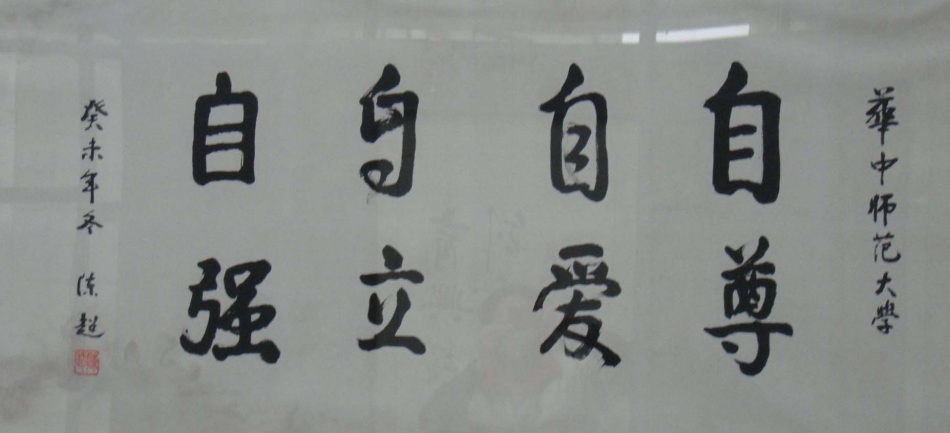 華中师范大學
自尊
自爱
自立
自强
癸未年冬 陈超